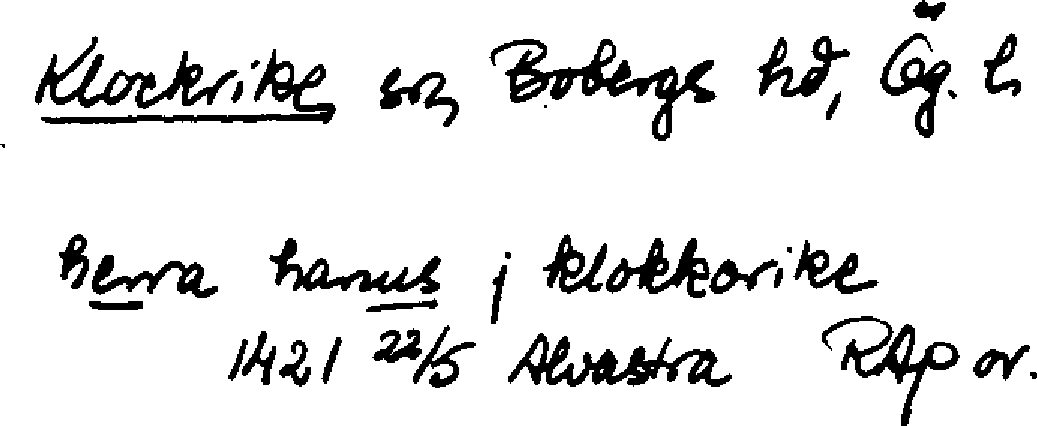 Klockrike sn, Bobergs hd, Ög. l.
herra hanus j klokkarike
1421 22/5 Alvastra RAp or.